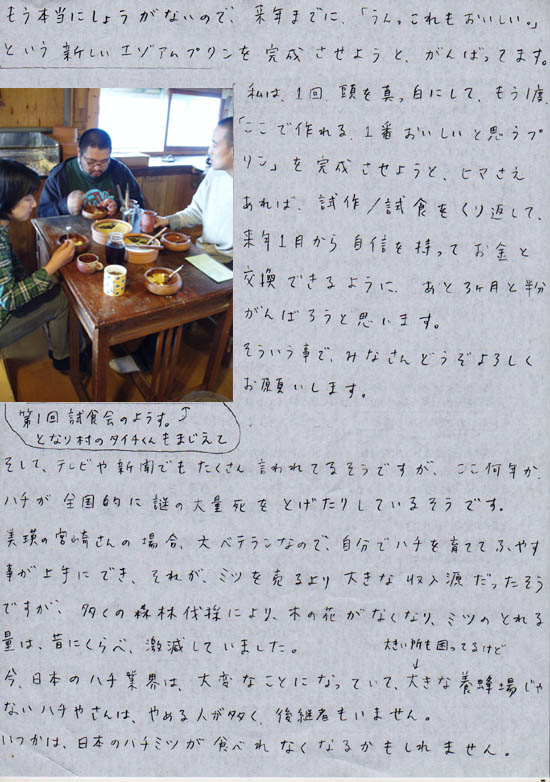 もう本当にしょうがないので、来年までに、「うんっこれもおいしい。」
という新しいエゾアムプリンを完成させようと、がんばってます。
私は、1回、頭を真っ白にして、もう1度、
「ここで作れる、1番おいしいと思うプ
リン」を完成させようと、ヒマさえ
あれば、試作/試食をくり返して、
来年1月から自信を持ってお金と
交換できるように、あと3ヶ月と半分
がんばろうと思います。
そういう事で、みなさんどうぞよろしく
お願いします。
第1回試食会のようす。
となり村のタイチくんもまじえて
そして、テレビや新聞でもたくさん言われてるそうですが、ここ何年か、
ハチが全国的に謎の大量死をとげたりしているそうです。
美瑛の宮崎さんの場合、大ベテランなので、自分でハチを育ててふやす
事が上手にでき、それが、ミツを売るより大きな収入源だったそう
ですが、多くの森林伐採により、木の花がなくなり、ミツのとれる
量は、昔にくらべ、激減していました。
大きい所も困ってるけど
今、日本のハチ業界は、大変なことになっていて、大きな養蜂場じゃ
ないハチやさんは、やめる人が多く、後継者もいません。
いつかは、日本のハチミツが食べれなくなるかもしれません。